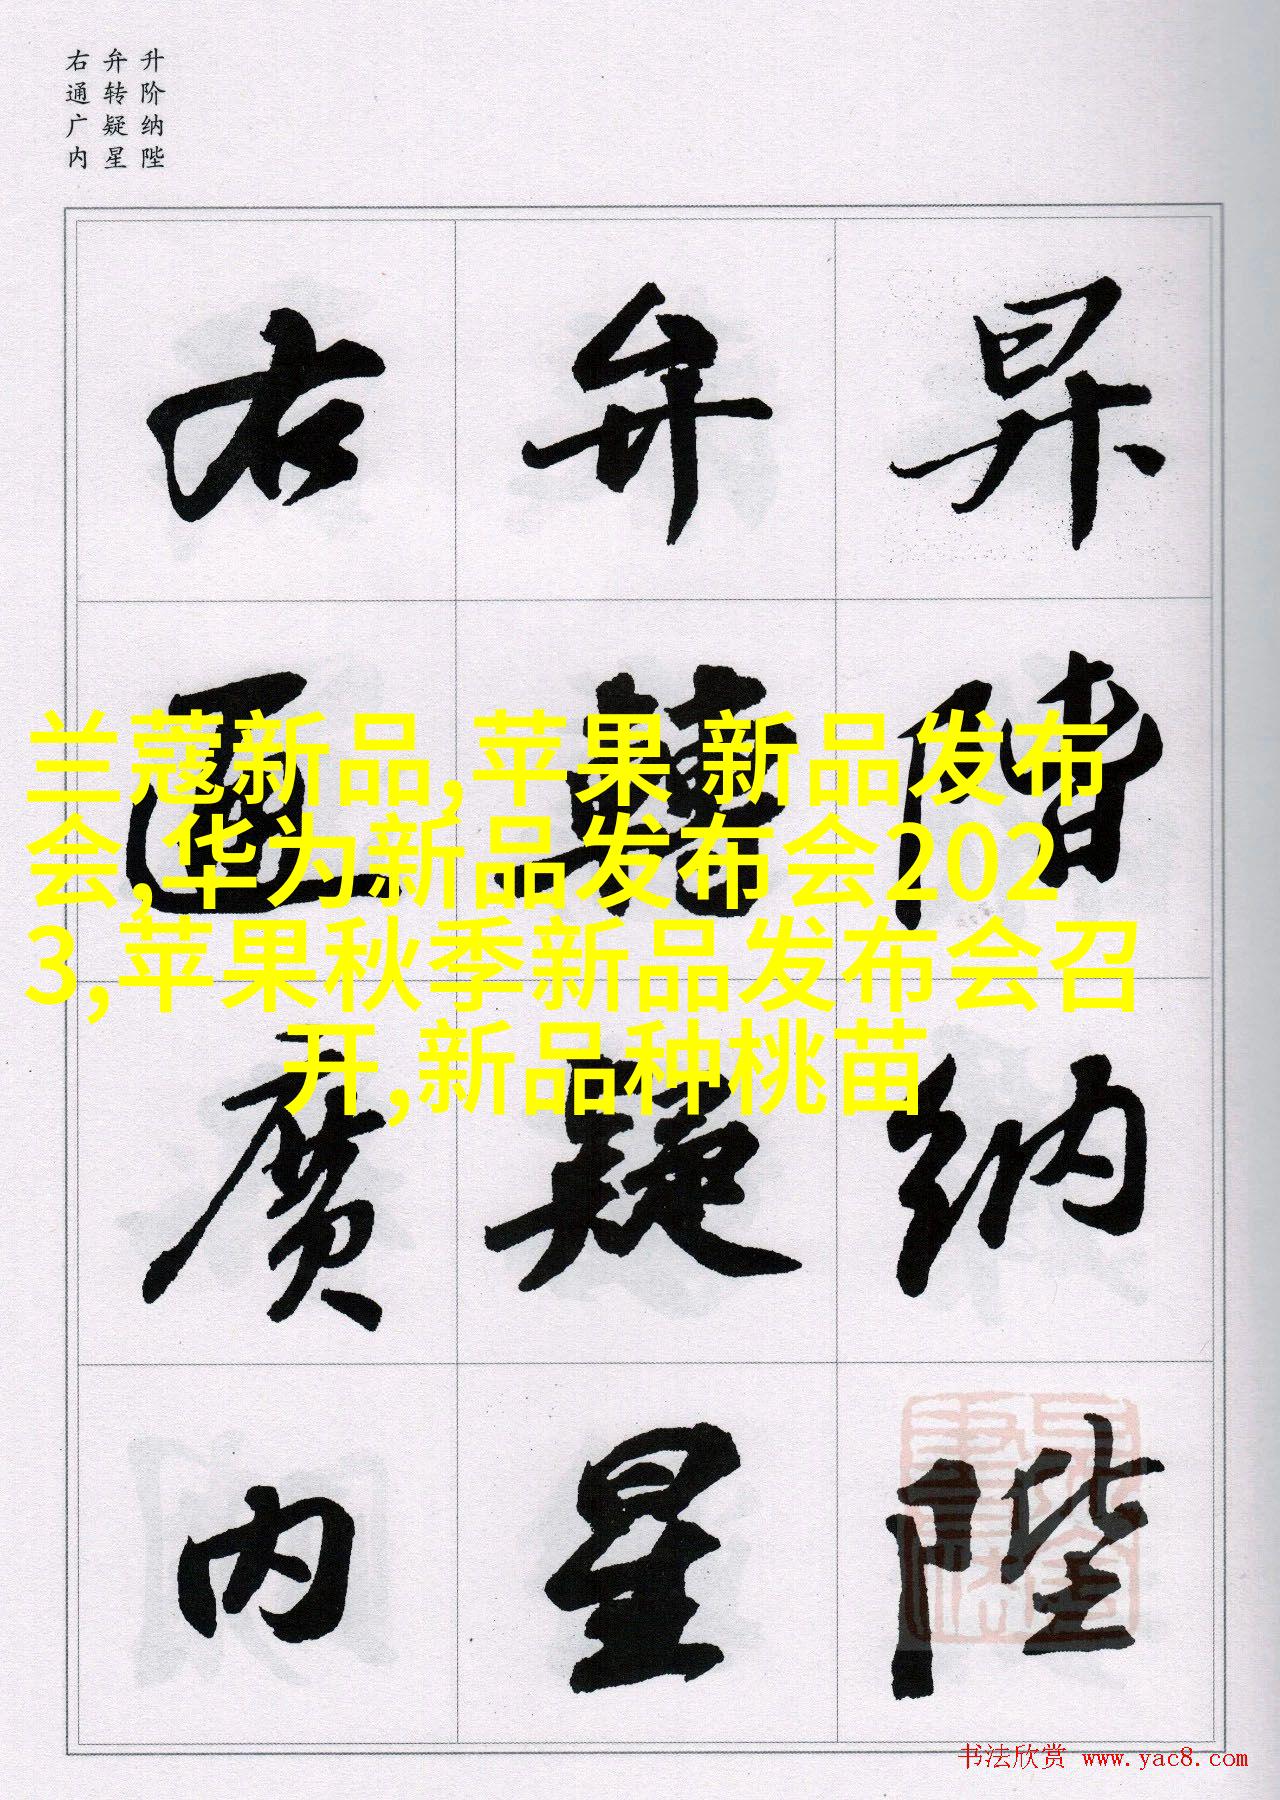 升阶纳陛
弁转疑星
右通广内
昇階納陛
弁轉疑星
右通廣内
兰蔻新品,苹果 新品发布
会,华为新品发布会202
3,苹果秋季新品发布会召
开,新品种桃苗
书法欣赏 www.yac8.com